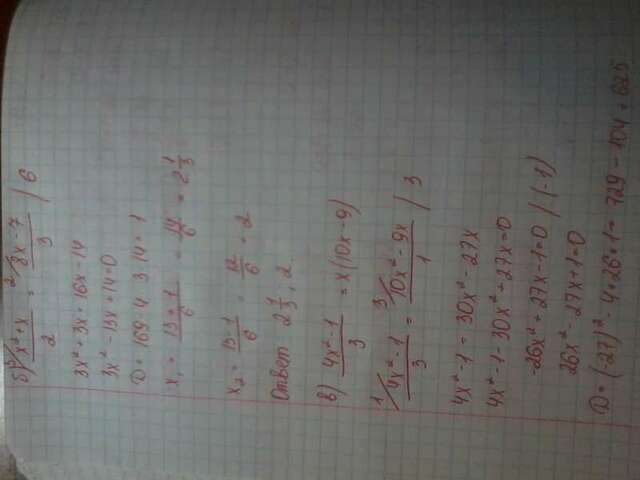 б) ³/ (x²+x)/2 = ²/ (8x-7)/3 / 6
3x² + 3x = 16x - 14
3x² - 13x + 14 = 0
D = 169 - 4 · 3 · 14 = 1
x₁ = (13 + 1)/6 = 14/6 = 2 1/3
x₂ = (13 - 1)/6 = 12/6 = 2
Ответ 2 1/3 ; 2
в) (4x² - 1)/3 = x(10x - 9)
¹/ (4x² - 1)/3 = ³/ (10x² - 9x)/1 / 3
4x² - 1 = 30x² - 27x
4x² - 1 - 30x² + 27x = 0
-26x² + 27x - 1 = 0 / (-1)
26x² - 27x + 1 = 0
D = (-27)² - 4 * 26 * 1 = 729 - 104 = 625